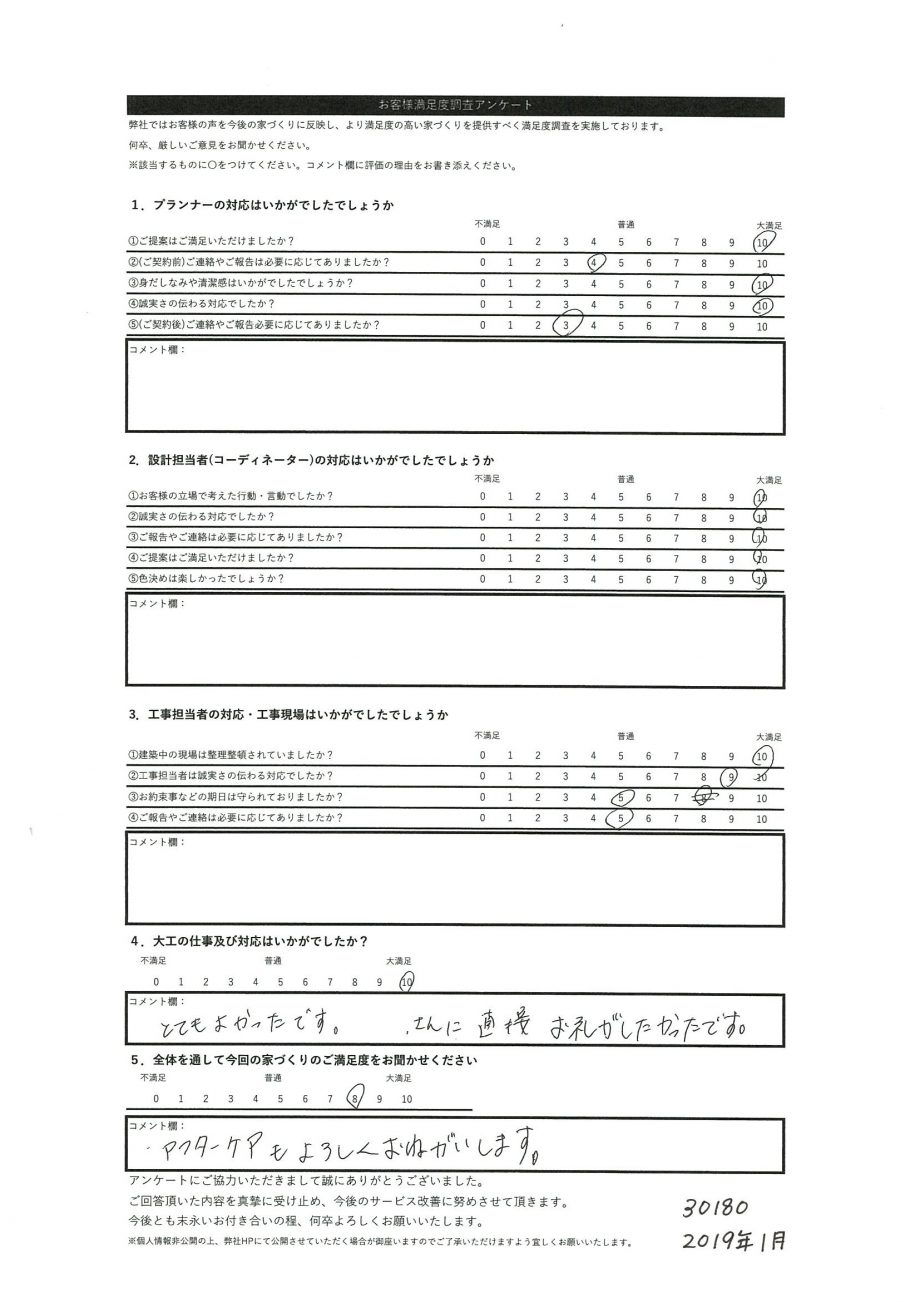 お客様満足度調査アンケート
弊社ではお客様の声を今後の家づくりに反映し、より満足度の高い家づくりを提供すべく満足度調査を実施しております。
何卒、厳しいご意見をお聞かせください。
※該当するものに〇をつけてください。コメント欄に評価の理由をお書き添えください。
1．プランナーの対応はいかがでしたでしょうか
不満足 普通 大満足
①ご提案はご満足いただけましたか？ 0 1 2 3 4 5 6 7 8 9 10
②(ご契約前)ご連絡やご報告は必要に応じてありましたか？ 0 1 2 3 4 5 6 7 8 9 10
③身だしなみや清潔感はいかがでしたでしょうか？ 0 1 2 3 4 5 6 7 8 9 10
④誠実さの伝わる対応でしたか？ 0 1 2 3 4 5 6 7 8 9 10
⑤(ご契約後)ご連絡やご報告必要に応じてありましたか？ 0 1 2 3 4 5 6 7 8 9 10
コメント欄：
2．設計担当者(コーディネーター)の対応はいかがでしたでしょうか
不満足 普通 大満足
①お客様の立場で考えた行動・言動でしたか？ 0 1 2 3 4 5 6 7 8 9 10
②誠実さの伝わる対応でしたか？ 0 1 2 3 4 5 6 7 8 9 10
③ご報告やご連絡は必要に応じてありましたか？ 0 1 2 3 4 5 6 7 8 9 10
④ご提案はご満足いただけましたか？ 0 1 2 3 4 5 6 7 8 9 10
⑤色決めは楽しかったでしょうか？ 0 1 2 3 4 5 6 7 8 9 10
コメント欄：
3．工事担当者の対応・工事現場はいかがでしたでしょうか
不満足 普通 大満足
①建築中の現場は整理整頓されていましたか？ 0 1 2 3 4 5 6 7 8 9 10
②工事担当者は誠実さの伝わる対応でしたか？ 0 1 2 3 4 5 6 7 8 9 10
③お約束事などの期日は守られておりましたか？ 0 1 2 3 4 5 6 7 8 9 10
④ご報告やご連絡は必要に応じてありましたか？ 0 1 2 3 4 5 6 7 8 9 10
コメント欄：
4．大工の仕事及び対応はいかがでしたか？
不満足 普通 大満足
0 1 2 3 4 5 6 7 8 9 10
コメント欄：
とてもよかったです。 さんに直接お礼がしたかったです。
5．全体を通して今回の家づくりのご満足度をお聞かせください
不満足 普通 大満足
0 1 2 3 4 5 6 7 8 9 10
コメント欄：
・アフターケアもよろしくおねがいします。
アンケートにご協力いただきまして誠にありがとうございました。
ご回答頂いた内容を真摯に受け止め、今後のサービス改善に努めさせて頂きます。
今後とも末永いお付き合いの程、何卒よろしくお願いいたします。
※個人情報非公開の上、弊社HPにて公開させていただく場合が御座いますのでご了承いただけますよう宜しくお願いいたします。
30180
2019年1月